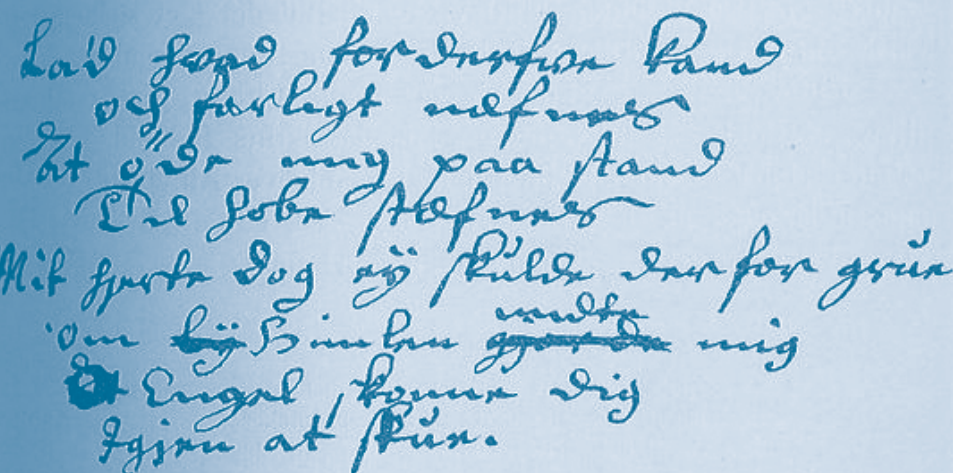 Lad hvad forderfve kand
och farligt næfnes
At öde mig paa stand
Til hobe stæfnes
Mit hjerte dog eÿ skulde derfor grue
om Himlen undte mig
Engel skjønne dig
Igjen at skue.